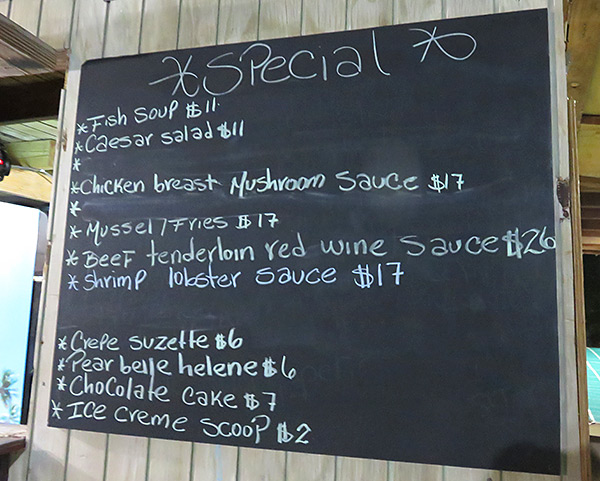 *Special*
*Fish soup $11
*Caesar salad $11
*
*Chicken breast Mushroom sauce $17
*
*Mussel/Fries $17
*Beef tenderloin red wine sauce $26
*Shrimp lobster sauce $17
*Crepe suzette $6
*Pear belle helene $6
*Chocolate cake $7
*Ice creme scoop $2